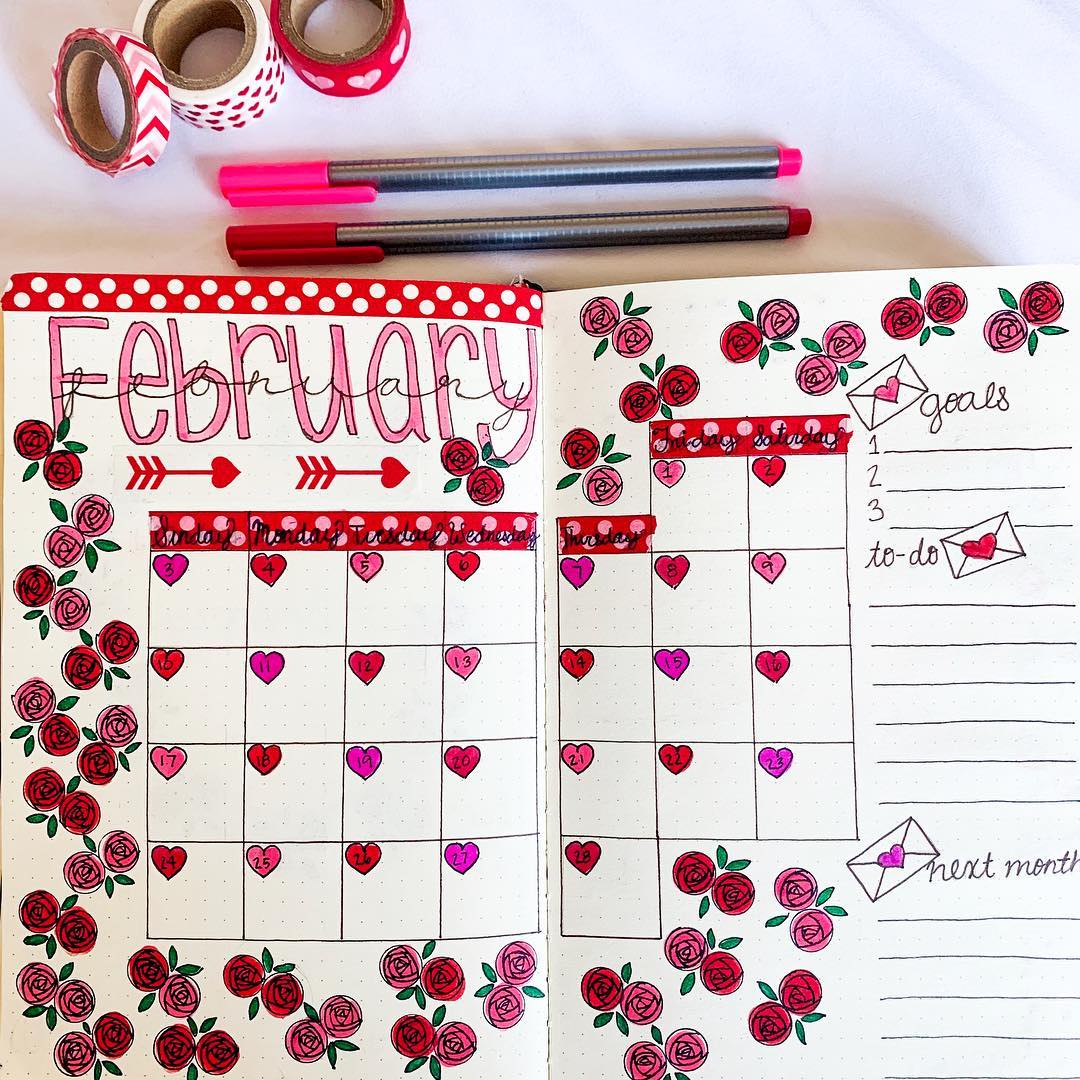 February
february
Sunday Monday Tuesday Wednesday
3 4 5 6
10 11 12 13
17 18 19 20
24 25 26 27
Friday Saturday
1 2
Thursday
7 8 9
14 15 16
21 22 23
28
goals
1
2
3
to-do
next month